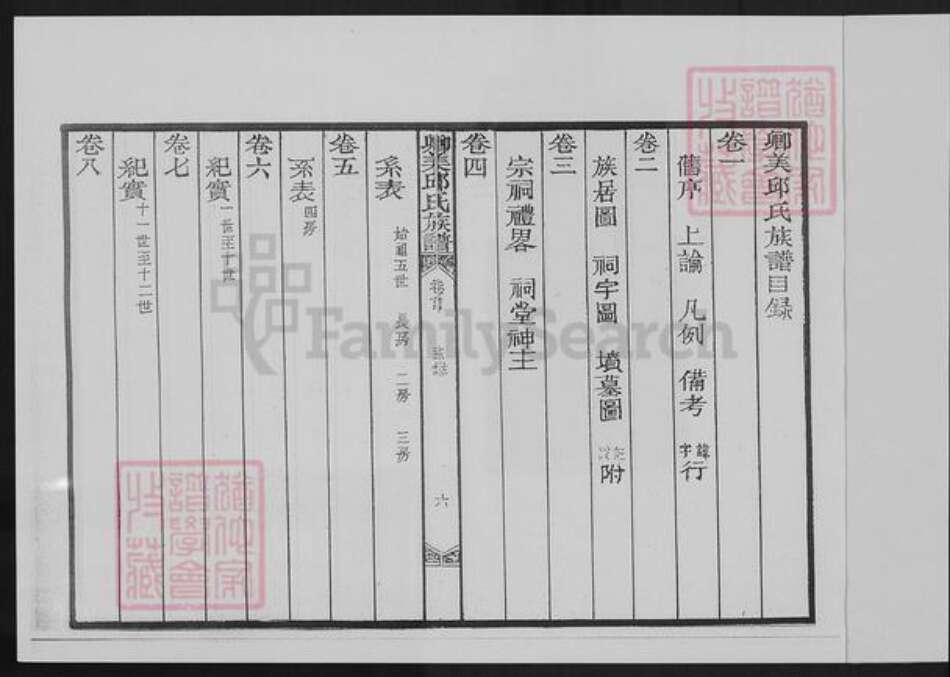 卿美邱氏族譜目録
卷一
舊序 上諭 凡例 備考 諱字行
卷二
族居圖 祠宇圖 墳墓圖 附
卷三
宗祠禮畧 祠堂神主
卷四
卿美邱氏族譜 卷首 目録 六
系表 始祖五世 長房 二房 三房
卷五
系表 四房
卷六
紀實 一世至十世
卷七
紀實 十一世至十二世
卷八
FamilySearch